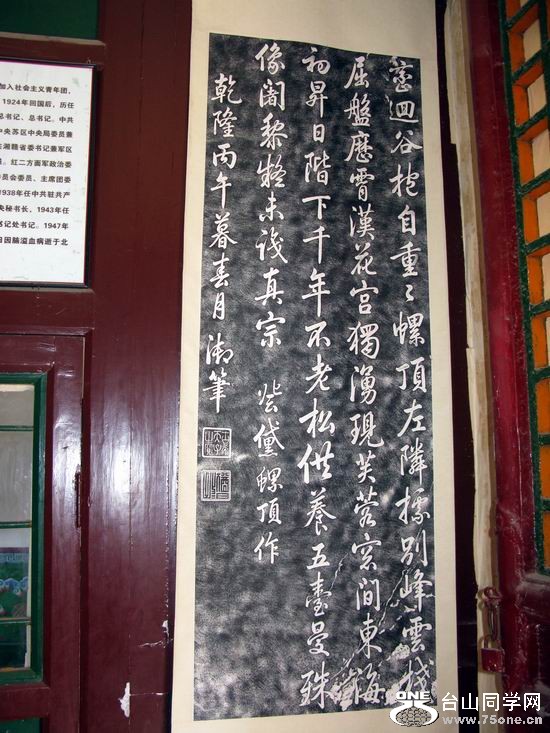 加入社会主义青年团,
1924年回国后,历任
总书记、总书记。中共
中央苏区中央局委员兼
湘赣省委书记兼军区
红二方面军政治委
员会委员、主席团委
1938年任中共驻共产
央秘书长,1943年任
书记处书记。1947年
日因脑溢血病逝于北
巒迴谷抱自重〻螺頂左隣據別峰雲棧
屈盤歷霄漢花宮獨湧現芙蓉窓間東海
初昇日階下千年不老松供養五臺曼殊
像闍黎未識真宗 登黛螺頂作
乾隆丙午暮春月御筆
ONE 台山同学网
www.75one.cn